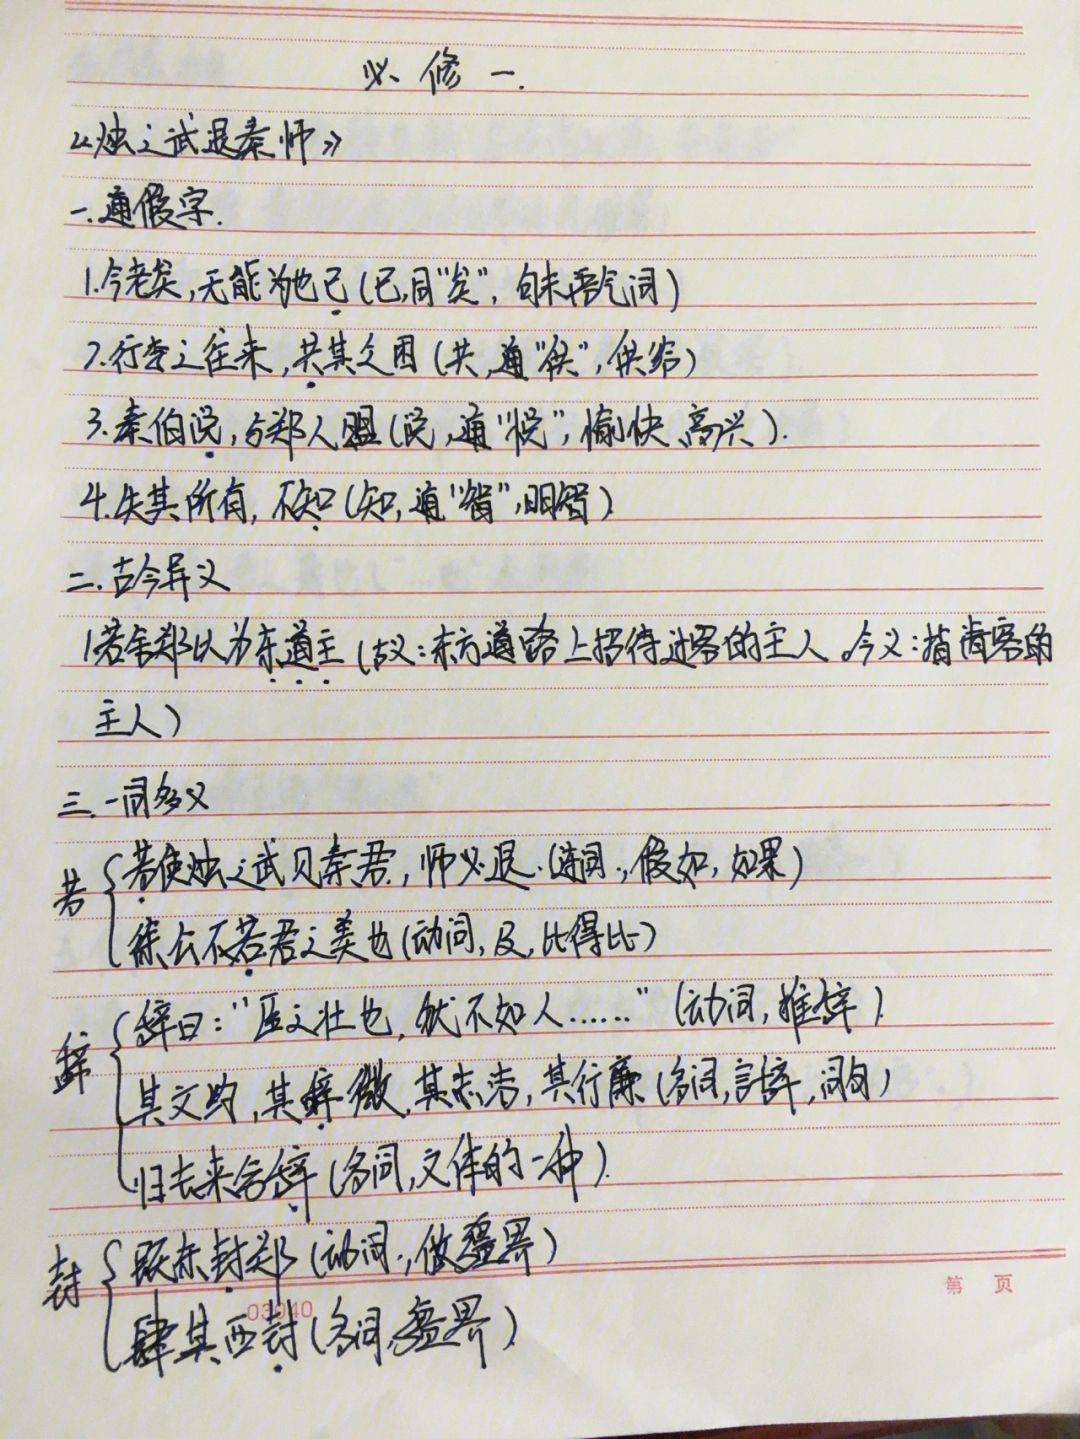 必修一.
《烛之武退秦师》
一.通假字.
1.今老矣,无能为也已(已,同"矣",句末语气词)
2.行李之往来,共其乏困(共,通"供",供给)
3.秦伯说,与郑人盟(说,通"悦",愉快、高兴).
4.失其所有,不知(知,通"智",明智)
二.古今异义
1若舍郑以为东道主(古义:东方道路上招待过客的主人。今义:指请客的
主人)
三.一词多义
若
若使烛之武见秦君,师必退.(连词,假如,如果)
徐公不若君之美也(动词,及,比得上)
辞
辞曰:"臣之壮也,犹不如人……"(动词,推辞)
其文约,其辞微,其志洁,其行廉(名词,言辞,词句)
归去来兮辞(名词,文体的一种).
封
既东封郑(动词,做疆界)
肆其西封(名词,疆界)
第 页
03040